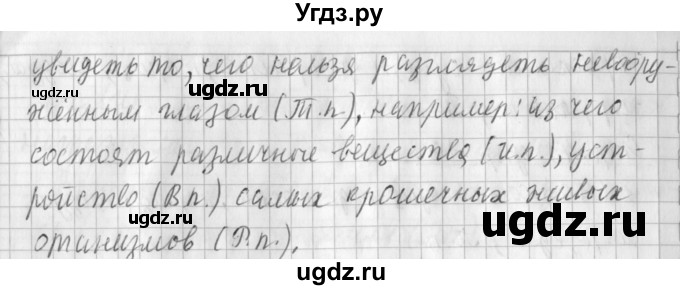 Угдз.ру
увидеть то, чего нельзя разглядеть невоору-
жённым глазом (Т.п.), например: из чего
состоят различные вещества (И.п.), уст-
ройство (В.п.) самых крошечных живых
организмов (Р.п.).
ugdz.ru
ugdz.ru
ugdz.ru
ugdz.ru
ugdz.ru
ugdz.ru
ugdz.ru
ugdz.ru